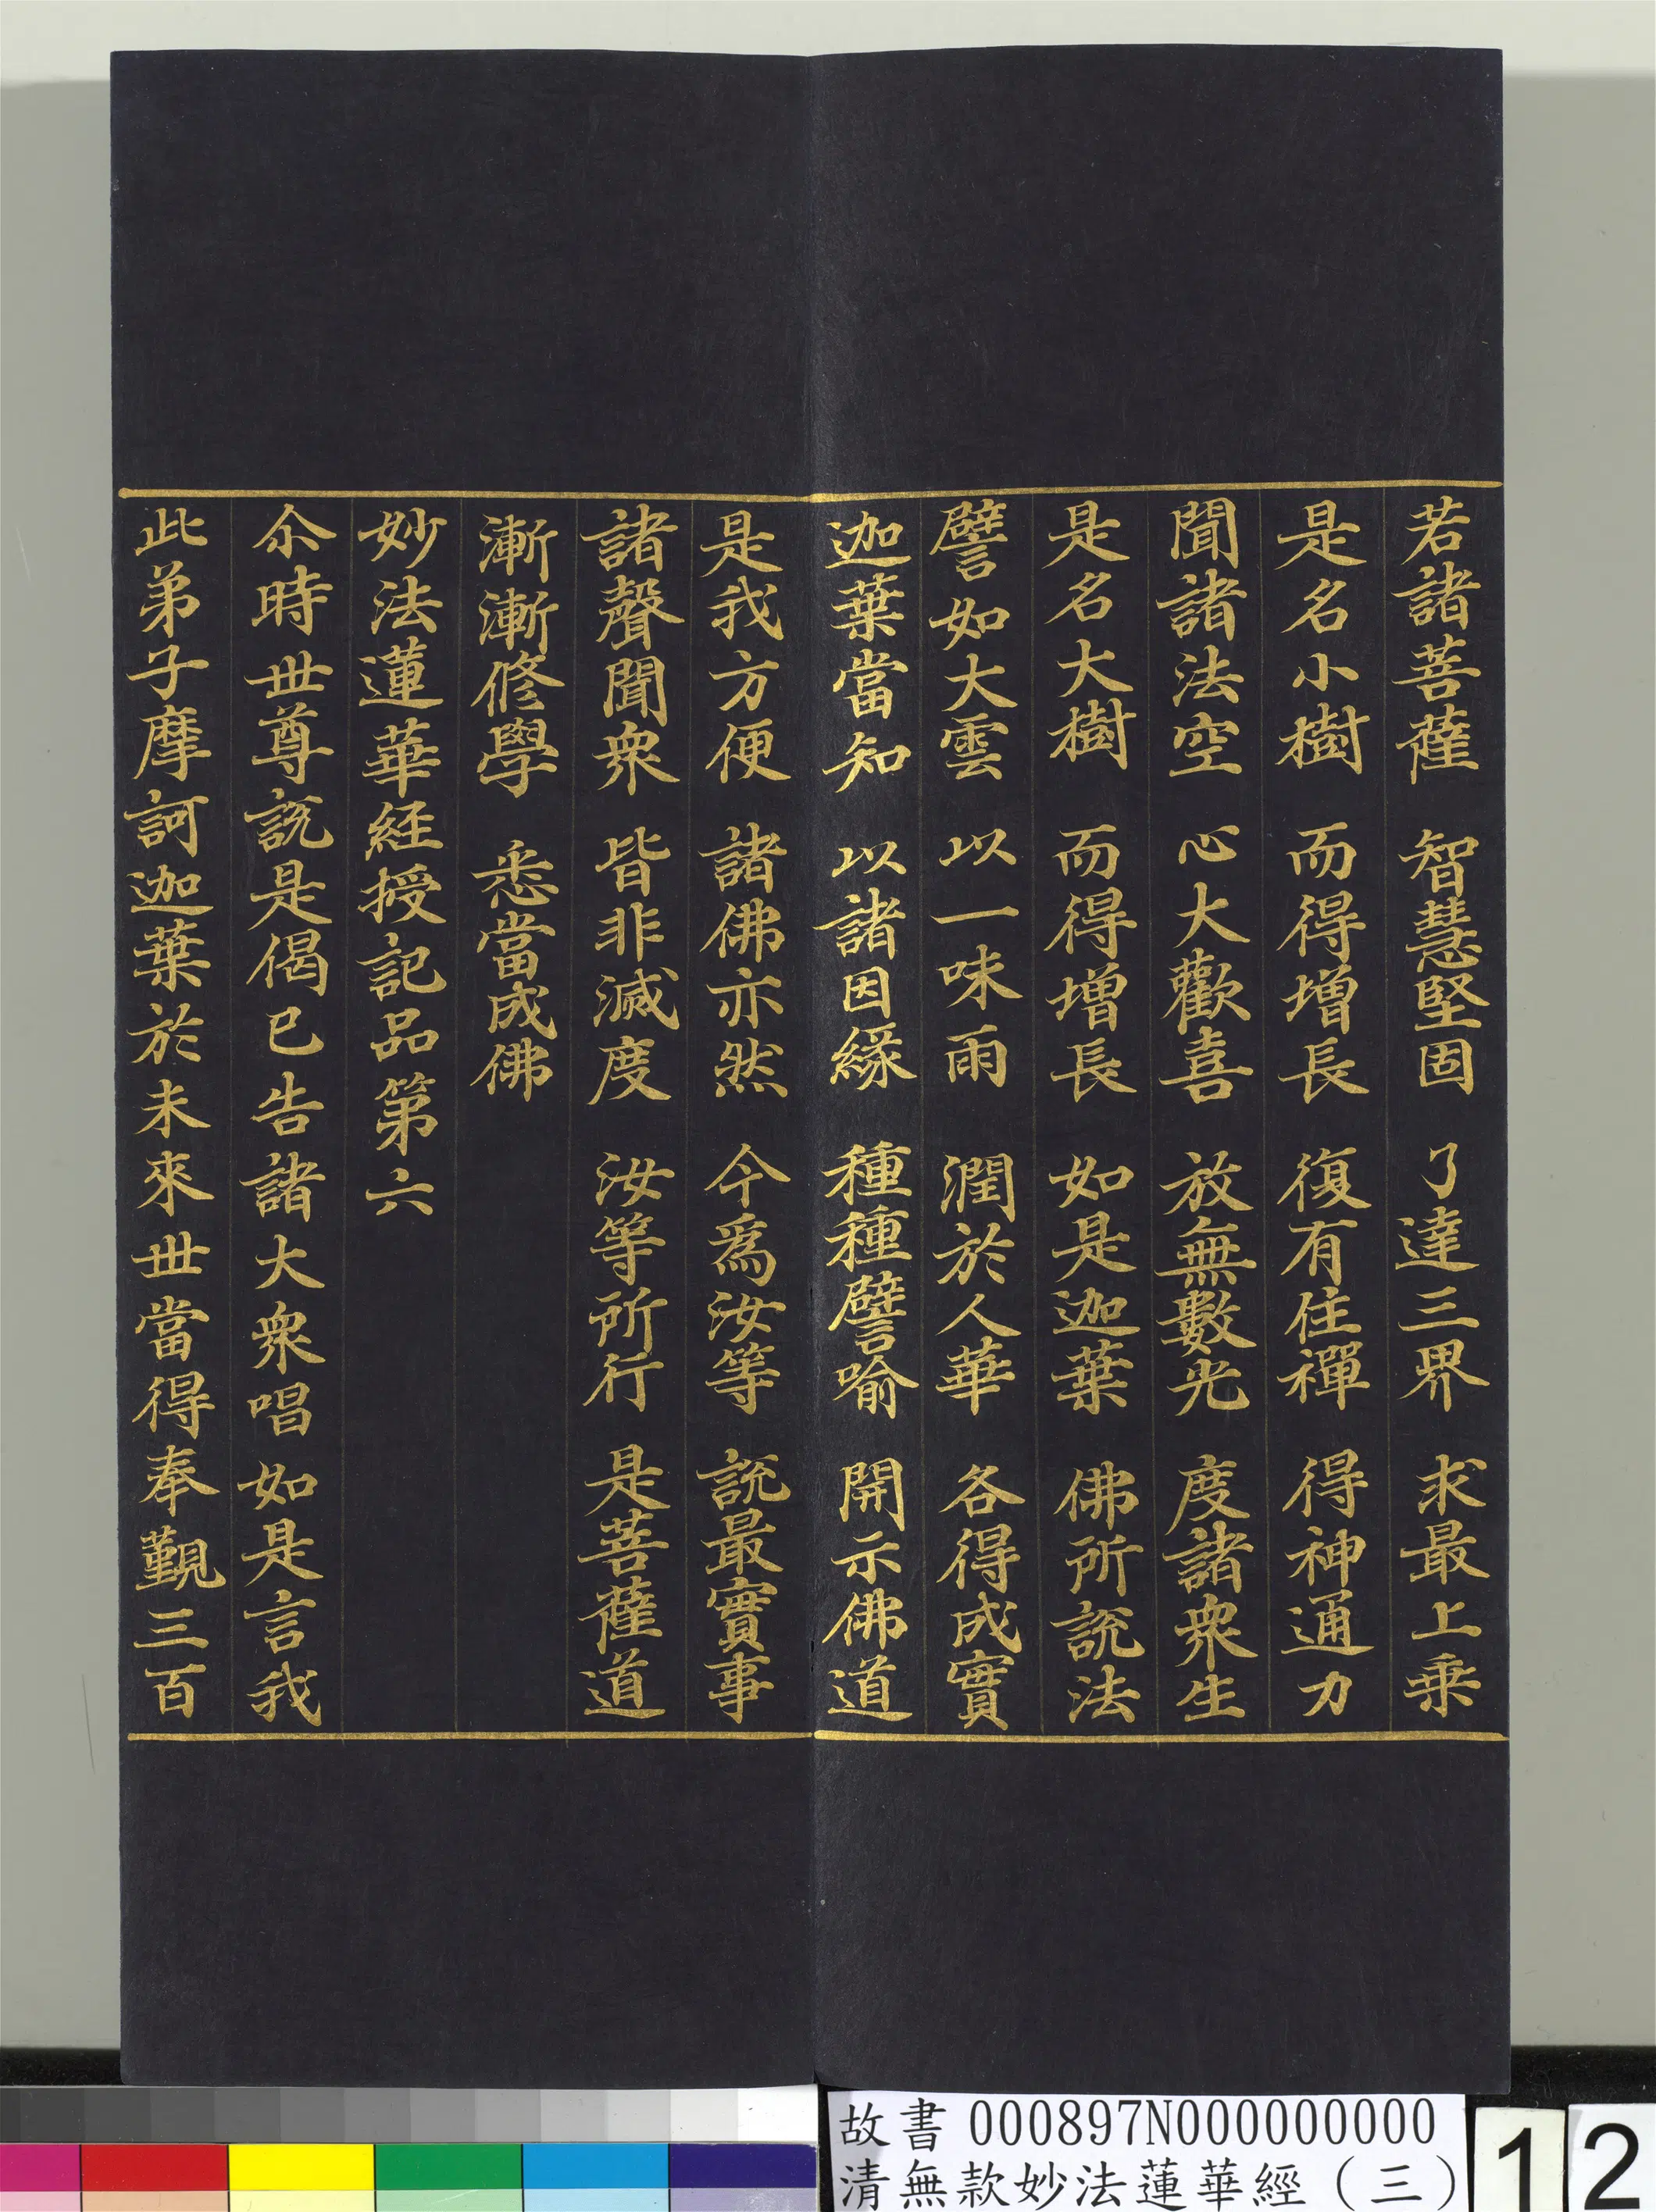 若諸菩薩　智慧堅固　了達三界　求最上乗
是名小樹　而得增長　復有住禪　得神通力
聞諸法空　心大歡喜　放無數光　度諸衆生
是名大樹　而得增長　如是迦葉　佛所說法
譬如大雲　以一味雨　潤於人華　各得成實
迦葉當知　以諸因緣　種種譬喻　開示佛道
是我方便　諸佛亦然　今爲汝等　說最實事
諸聲聞衆　皆非滅度　汝等所行　是菩薩道
漸漸修學　悉當成佛
妙法蓮華経授記品第六
尒時世尊說是偈已告諸大衆唱如是言我
此弟子摩訶迦葉於未來世當得奉覲三百
故書 000897N000000000
清無款妙法蓮華經（三）
12